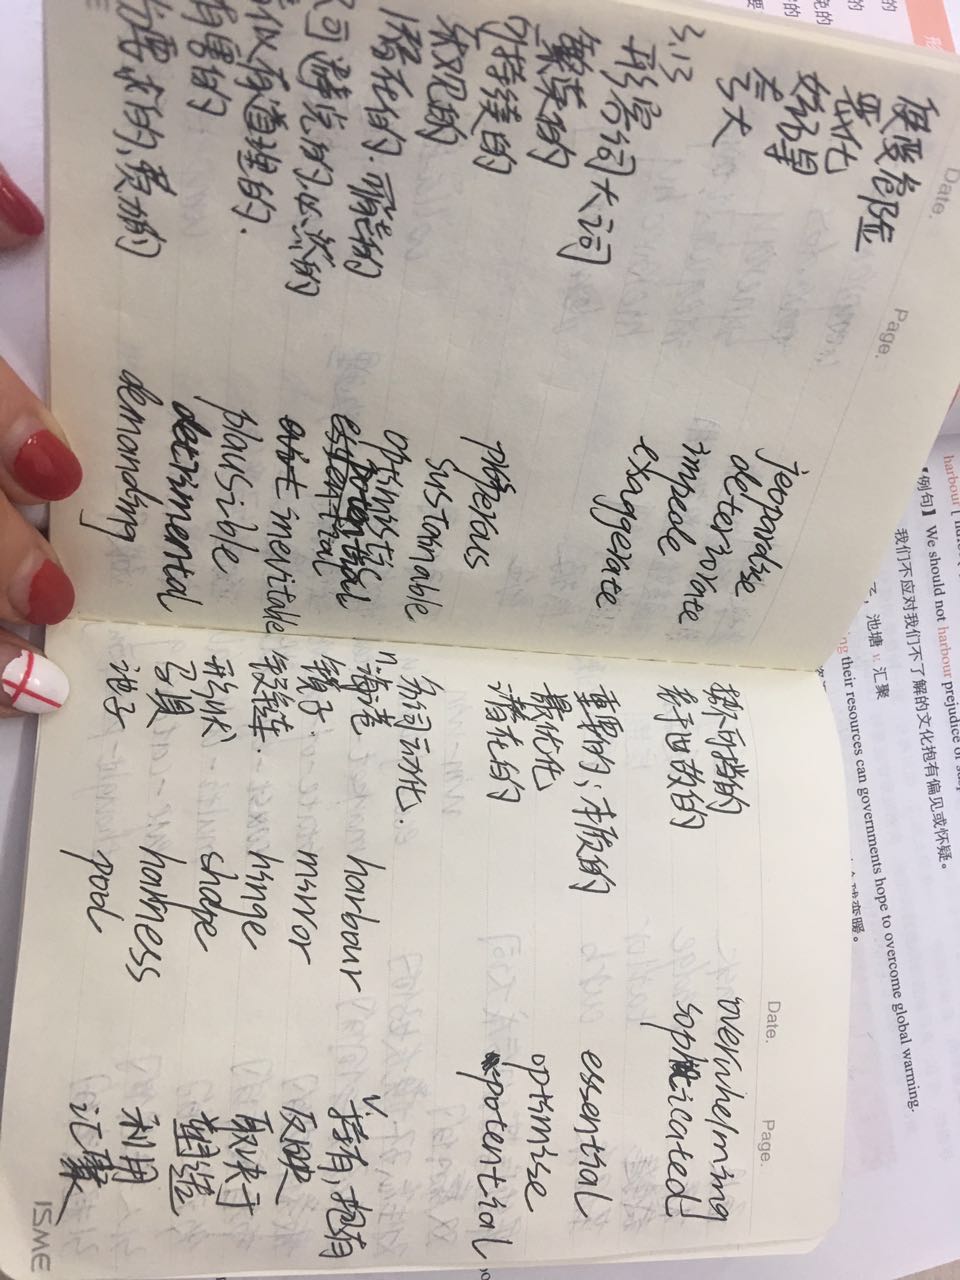 Date. Page.
使变危险 jeopardise
恶化 deteriorate
妨碍 impede
夸大 exaggerate
3.13
形容词大词
繁荣的 prosperous
可持续的 sustainable
乐观的 optimistic
潜在的.
不可避免的.必然的 inevitable
似有道理的. plausible
有害的 detrimental
费力的 demanding
Date. Page.
不可挡的 overwhelming
于世故的 sophisticated
重要的;本质的 essential
最优化 optimise
潜在的 potential
名词动化.
n.海港 harbour v.持有,抱有
镜子. mirror 反映
铰链. hinge 取决于
形状 shape 塑造
马具 harness 利用
池子 pool 汇聚
ISME
harbour
【例句】We should not harbour prejudice or
我们不应对我们不了解的文化抱有偏见或怀疑。
池塘 v. 汇聚
their resources can governments hope to overcome global warming.
变暖。